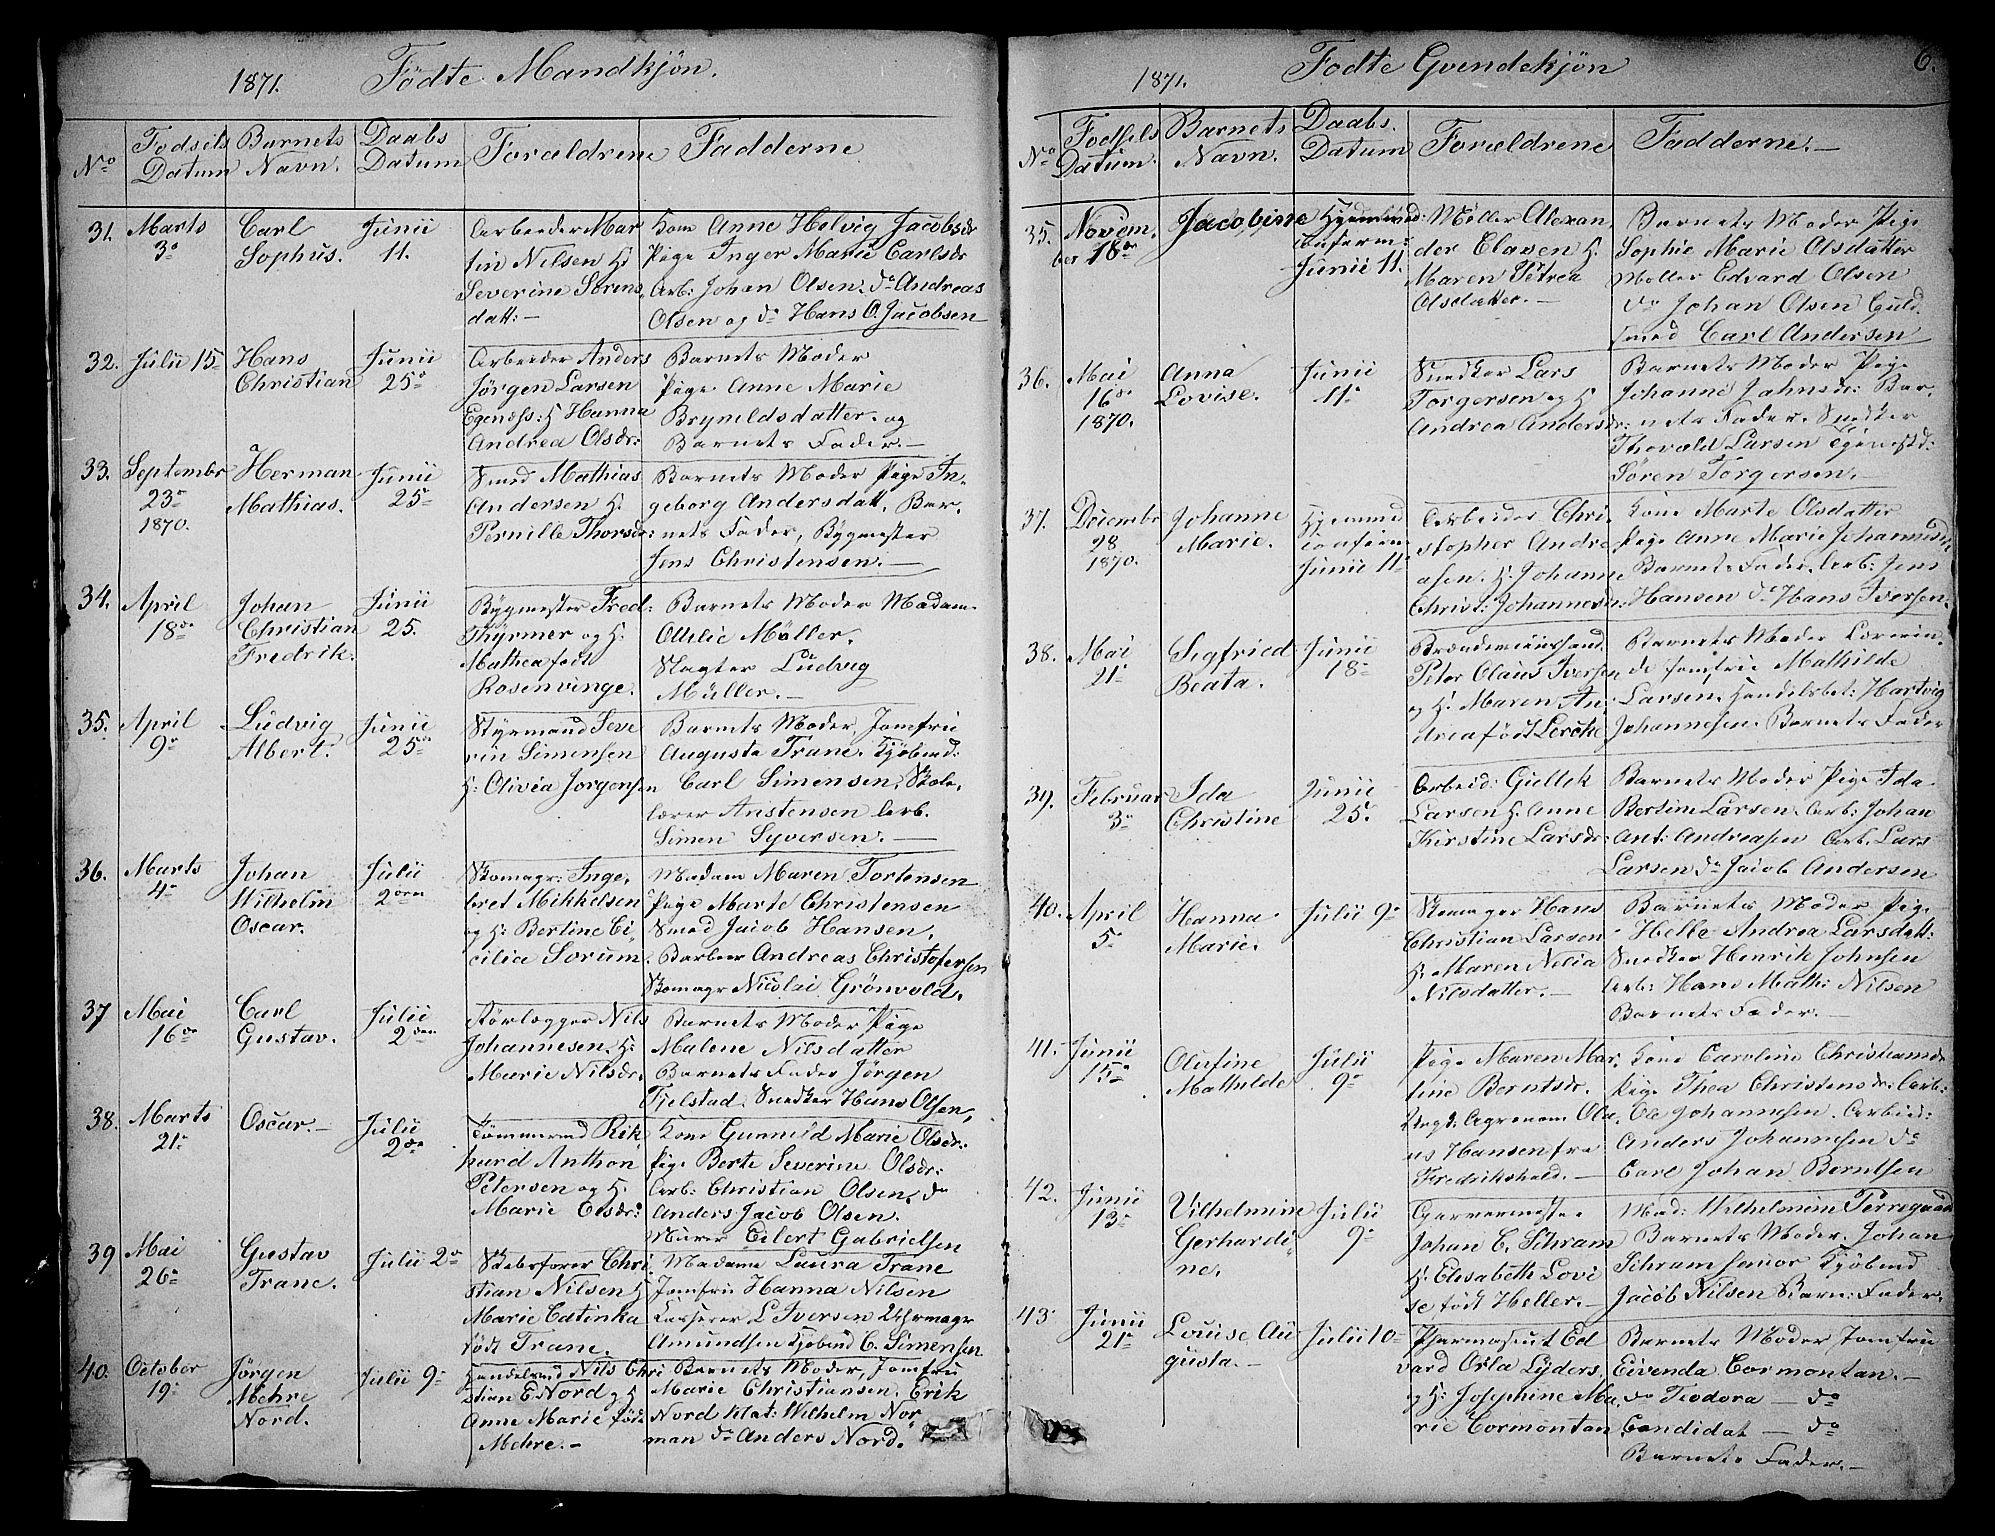 1871. Födte Mandkjön.
No
Födsels
Datum
Barnets
Navn.
Daabs
Datum
Forældrene
Fadderne
31.
Marts
3e
Carl
Sophus.
Junii
11.
Arbeider Mar
tin Nilsen H:
Severine Sörens
datt: —
Kone Anne Helvig Jacobsdr
Pige Inger Marie Carlsdr
Arb: Johan Olsen. do Andreas
Olsen og do Hans O. Jacobsen
32.
Julii 15
Hans
Christian
Junii
25
Arbeider Anders
Jörgen Larsen
Egenæss: H Hanna
Andrea Olsdr:
Barnets Moder
Pige Anne Marie
Brynildsdatter. og
Barnets Fader. —
33.
Septembr
23
1870.
Herman
Mathias.
Junii
25
Smed Mathias
Andersen H:
Pernille Thorsdr:
Barnets Moder Pige In-
geborg Andersdatt. Bar,
nets Fader, Bygmester
Jens Christensen. —
34.
April
18de
Johan
Christian
Fredrik.
Junii
25.
Bygmester Fred:
Thyrmer og H:
Mathea født
Rosenvinge.
Barnets Moder Madam
Ottilie Möller.
Slagter Ludvig
Müller. —
35.
April
9
Ludvig
Albert.
Junii
25
Styrmand Seve
rin Simensen
H: Olivia Jorgensen
Barnets Moder Jomfru
Augusta Trane. Kjøbmd:
Carl Simensen, Skole,
lærer Anstensen Arb.
Simen Syversen. —
36.
Marts
4
Johan
Wilhelm
Oscar.
Julii
2den
Skomagr: Inge,
bret Mikkelsen
og H: Bertine Ce
cilia Sorum
Madam Maren Tortensen
Pige Marte Christensen
Smed Jacob Hansen,
Barbeer Andreas Christofersen
Skomagr Nicolai Grönvold.
37
Mai
16de
Carl
Gustav.
Julii
2den
Rörlægger Nils
Johannesen. H:
Marie Nilsdr.
Barnets Moder Pige
Malene Nilsdatter
Barnets Fader Jörgen
Fjelstad. Snedker Hans Olsen,
38.
Marts
21
Oscar. —
Julii
2de
Tömmermd Rik
hard Anthon
Petersen og H.
Marie Olsdr:
Kone Gunnild Marie Olsdr:
Pige Berte Severine Olsdr:
Arb: Christian Olsen, do
Anders Jacob Olsen.
Murer Eilert Gabrielsen
39
Mai
26
Gustav
Trane.
Julii 2
Skibsförer Chri
stian Nilsen H
Marie Catinka
född Trane.
Madame Laura Trane
Jomfru Hanna Nilsen
Kasserer L Iversen Uhrmagr
Amundsen Kjöbmd C. Simensen
40.
October
19
Jörgen
Mehre
Nord.
Julii 9
Handelsmd Nils Chri
stian E Nord og H
Anne Marie föd
Mehre. —
Barnets Moder, Jomfru
Marie Christiansen. Erik
Nord Klat: Wilhelm Nor
man do Anders Nord.
1871. Födte Qvindekjön 6.
No
Fodsels
Datum.
Barnets
Navn.
Daabs.
Datum
Forældrene
Fadderne. —
35.
Novem,
ber 18de
Jacobine
Hjemmed:
conferm:
Junii 11.
Möller Alexan
der Clasen H.
Maren Petrea
Olsdatter. —
Barnets Moder Pige
Sophie Marie Olsdatter
Möller Edvard Olsen
do Johan Olsen Guld
smed Carl Andersen
36.
Mai
16de
1870.
Anna
Lovise.
Junii
11
Snedker Lars
Torgersen og H
Andrea Andersdr:
Barnets Moder Pige
Johanne Jahnsdr: Bar,
nets Fader. Snedker
Thorvald Larsen
Sören Torgersen. —
37.
Decembr
28
1870.
Johanne
Marie.
Hjemmed
conferm
Junii 11
Arbeider Chri,
stopher Andre
asen. H. Johanne
Christ: Johannesdr:
Kone Marte Olsdatter
Pige Anne Marie Johannesdr,
Barnets Fader. Arb: Jens
Hansen do Hans Iversen.
38.
Mai
21
Segfried
Beata.
Junii
18
Peter Olaus Iversen
og H. Maren An,
drea född Lerche
Barnets Moder Lærerin,
de Jomfru Mathilde
Larsen. Handelsbet: Hartvig
Johannesen. Barnets Fader
39.
Februar
3
Ida
Christine
Junii
25
Arbeid: Gullik
Larsen H. Anne
Kirstine Larsdr:
Barnets Moder Pige Ida
Bertine Larsen. Arb: Johan
Ant: Andreasen Arb. Lars
Larsen do Jacob Andersen
40.
April
5
Hanna
Marie.
Julii 9
Skomager Hans
Christian Larsen
H. Maren Nelia
Nilsdatter. —
Barnets Moder Pige
Helle Andrea Larsdatt:
Snedker Henrik Johnsen
Arb: Hans Math: Nilsen
Barnets Fader. —
41.
Junii
15
Olufine
Mathilde
Julii
9
Pige Maren Mar,
tine Berntsdr.
Ungk: Agronom Ola,
us Hansen fra
Fredrikshald. —
Kone Caroline Christiansdr
Pige Thea Christensdr: Arb:
Ole Johannesen. Arbeid:
Anders Johannesen do
Carl Johan Berntsen
42.
Junii
13
Vilhelmine
Gerhardi,
ne.
Julii
9
Garvermester
Johan C. Schram
H. Elisabeth Lovi
se född Heller. —
Mad: Wilhelmine Terregaard
Barnets Moder. Johan
Schram senior Kjöbmd
Jacob Nilsen Barn: Fader.
43
Junii
21
Louise Au
gusta. —
Julii 10
Pharmaseut Ed
vard Orla Lyders,
og H. Josephine Ma,
rie Cormontan
Barnets Moder Jomfru
Eivenda Cormontan. —
do Teodora — do
Candidat — do
Barnets Fader. —